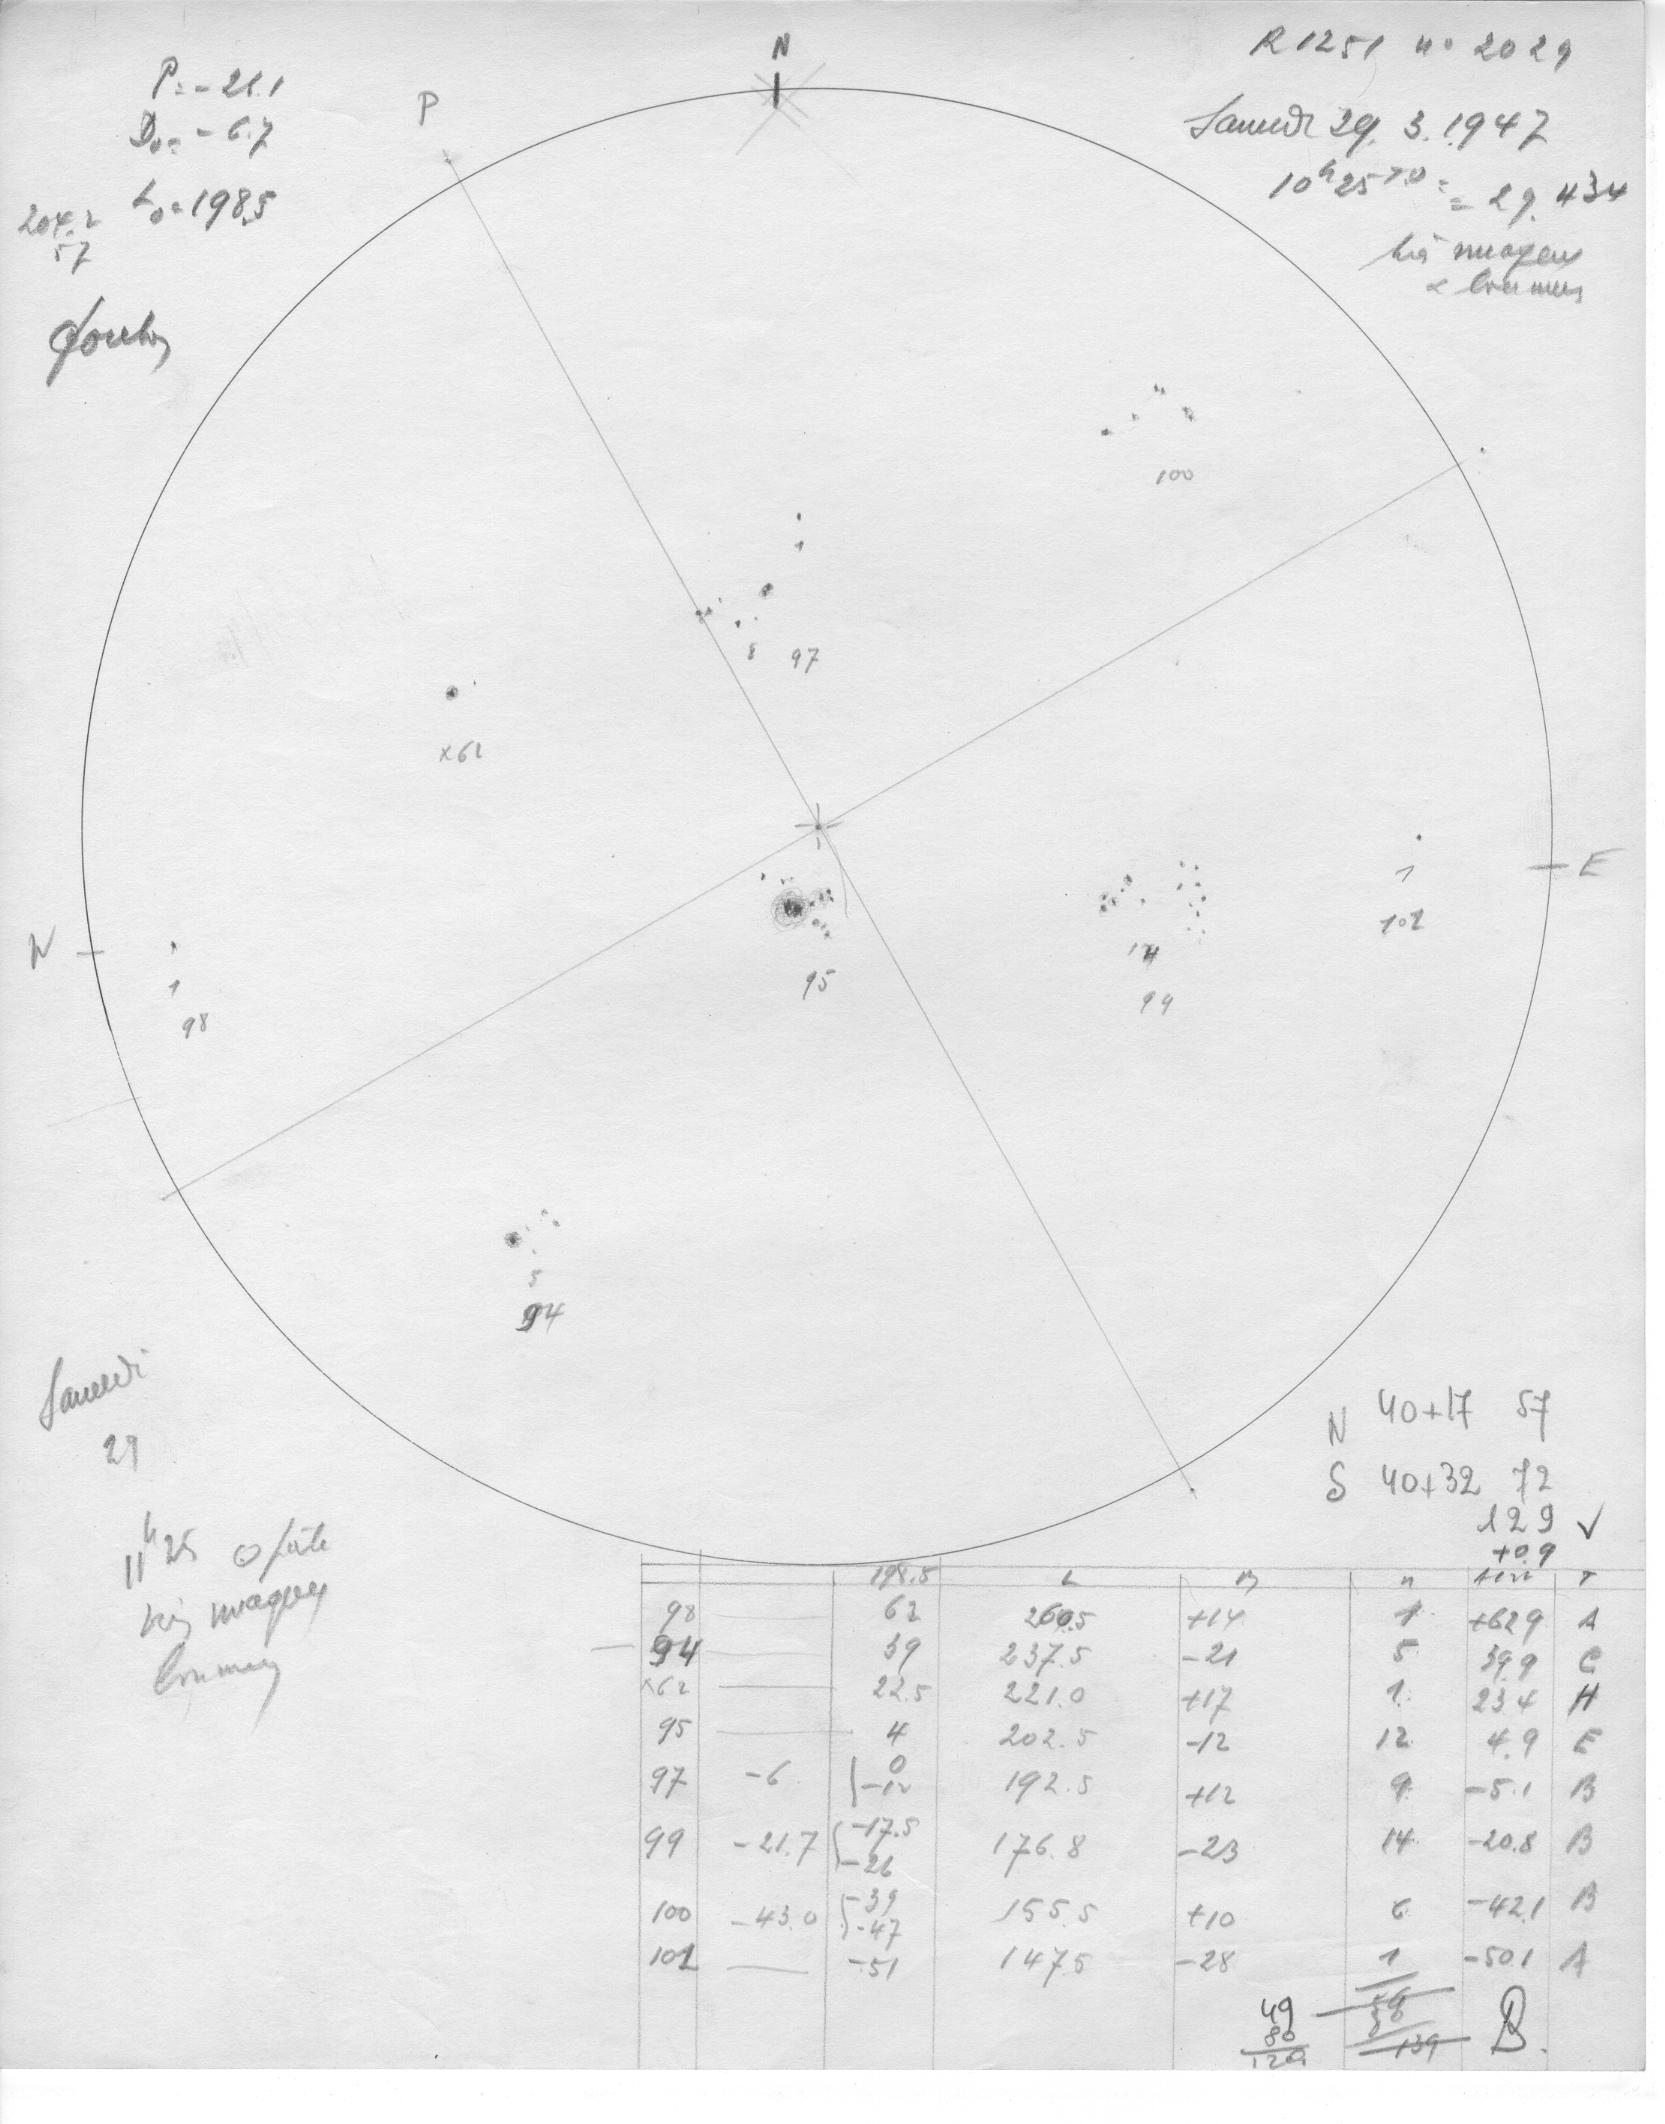 N
R 1251 no 2029
P
P = -26.1
Samedi 29. 3. 1947
D₀ = -6.7
10h25 TU =
= 29.434
L₀ = 198.5
204.2
57
très nuageux
& brumeux
100
8 97
x62
E
1
102
W
1
98
95
14
99
5
94
Samedi
29
11h25
très nuageux
brumeux
N 40+17 57
S 40+32 72
129 ✓
+0.9
198.5 L B n T
98 62 260.5 +14 1 +62.9 A
94 39 237.5 -21 5 39.9 C
x62 22.5 221.0 +17 1 23.4 H
95 4 202.5 -12 12 4.9 E
97 -6 { 0 -12 192.5 +12 9 -5.1 B
99 -21.7 { -17.5 -26 176.8 -23 14 -20.8 B
100 -43.0 { -39 -47 155.5 +10 6 -42.1 B
102 -51 147.5 -28 1 -50.1 A
49
80
129
139
B.